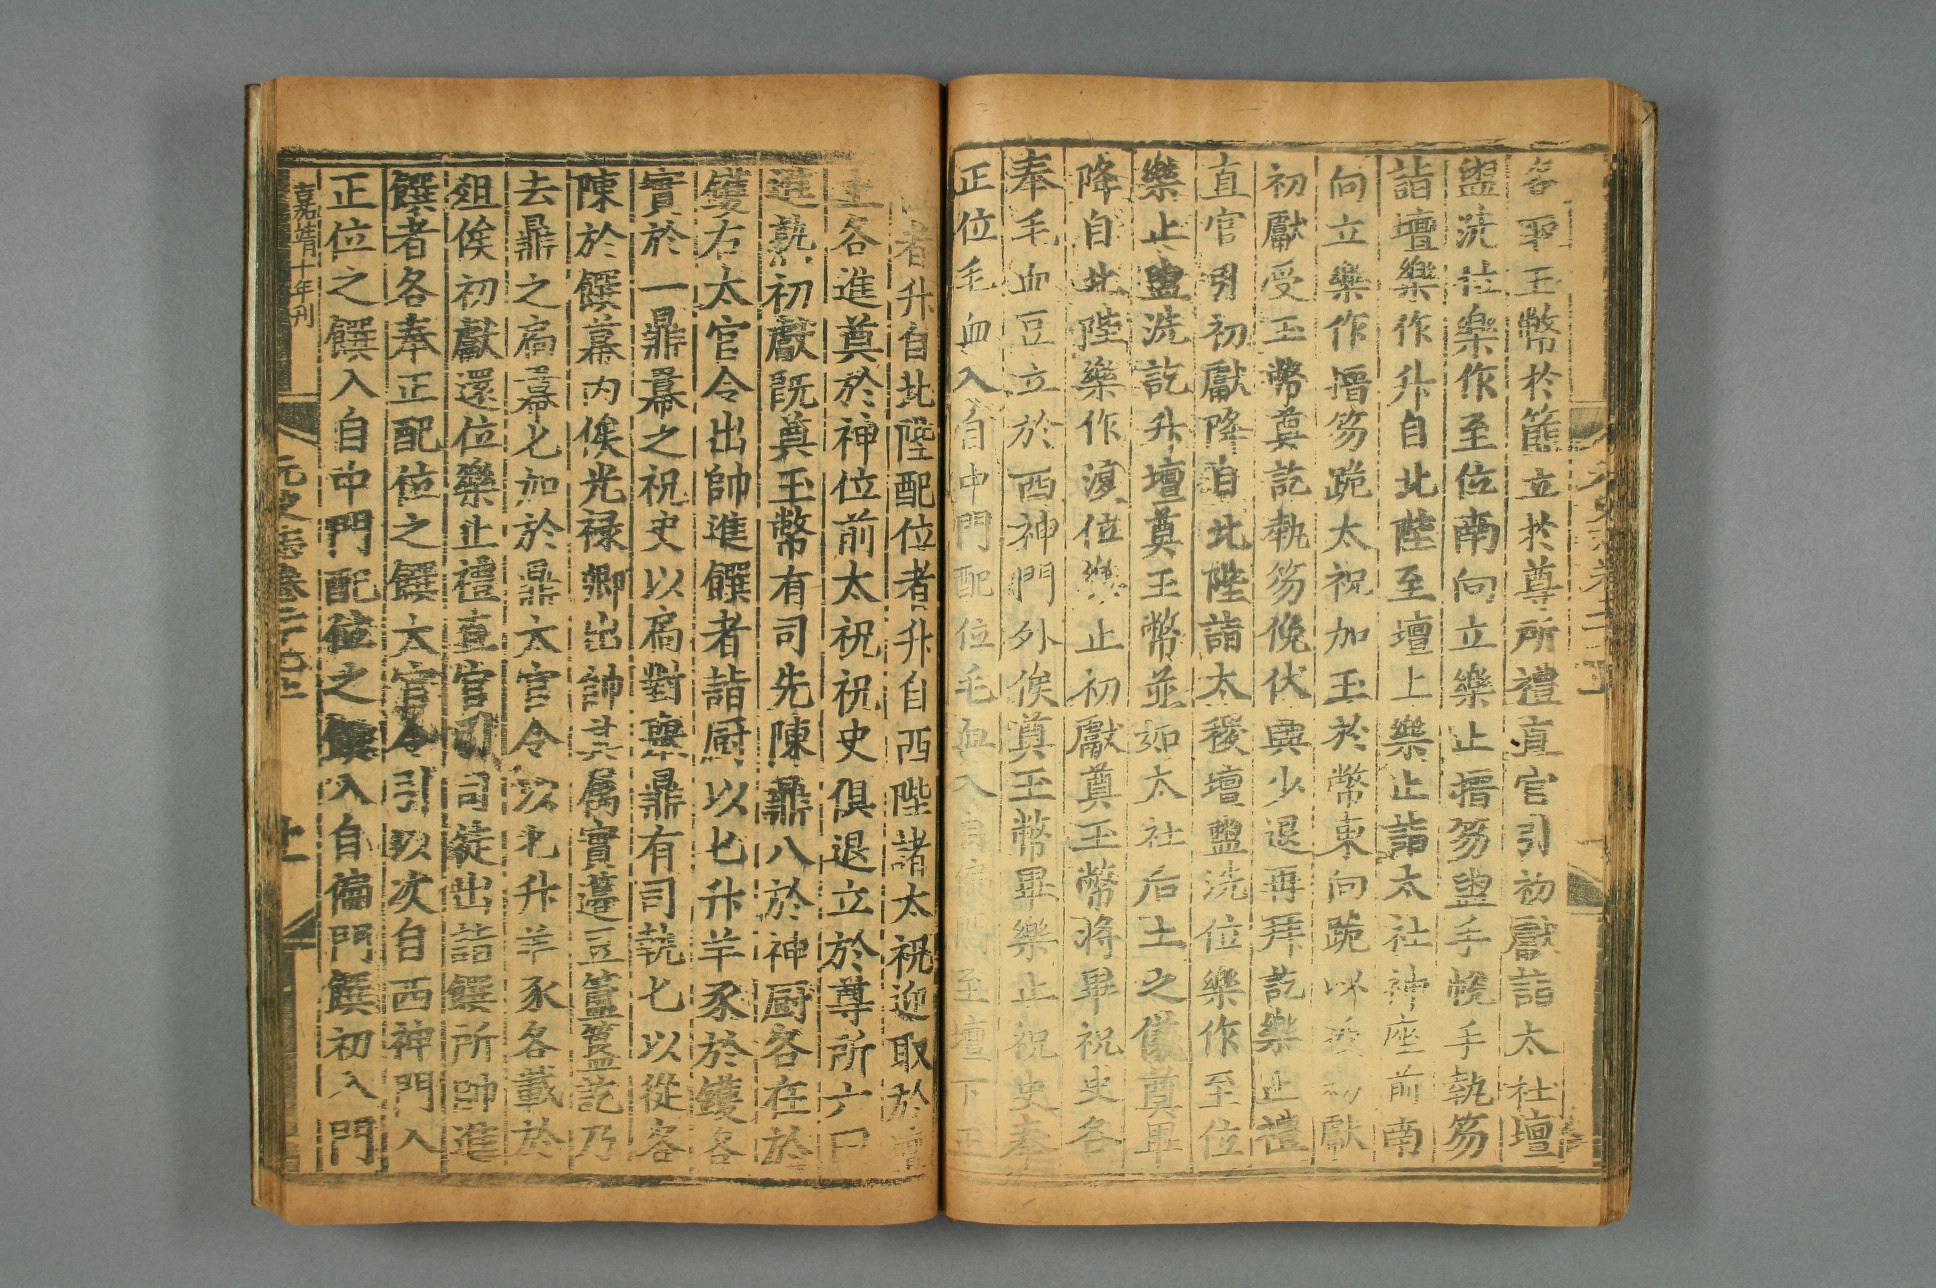 各取玉幣於篚立於尊所禮直官引初獻詣太社壇
盥洗位樂作至位南向立樂止搢笏盥手帨手執笏
詣壇樂作升自北陛至壇上樂止詣太社神座前南
向立樂作搢笏跪太祝加玉於幣東向跪以授初獻
初獻受玉幣奠訖執笏俛伏興少退再拜訖樂止禮
直官引初獻降自北陛詣太稷壇盥洗位樂作至位
樂止盥洗訖升壇奠玉幣並如太社后土之儀奠畢
降自北陛樂作復位樂止初獻奠玉幣將畢祝史各
奉毛血豆立於西神門外俟奠玉幣畢樂止祝史奉
正位毛血入自中門配位毛血入自偏門至壇下正
者升自北陛配位者升自西陛諸太祝迎取於壇
上各進奠於神位前太祝祝史俱退立於尊所六曰
進熟初獻既奠玉幣有司先陳鼎八於神厨各在於
鑊右太官令出帥進饌者詣厨以匕升羊豕於鑊各
實於一鼎冪之祝史以扃對舉鼎有司執匕以從各
陳於饌幕内俟光禄卿出帥其属實籩豆簠簋訖乃
去鼎之扃冪匕加於鼎太官令以匕升羊豕各載於
俎俟初獻還位樂止禮直官引司徒出詣饌所帥進
饌者各奉正配位之饌太官令引以次自西神門入
正位之饌入自中門配位之饌入自偏門饌初入門
嘉靖十年刊
元史志卷二十七上
十一